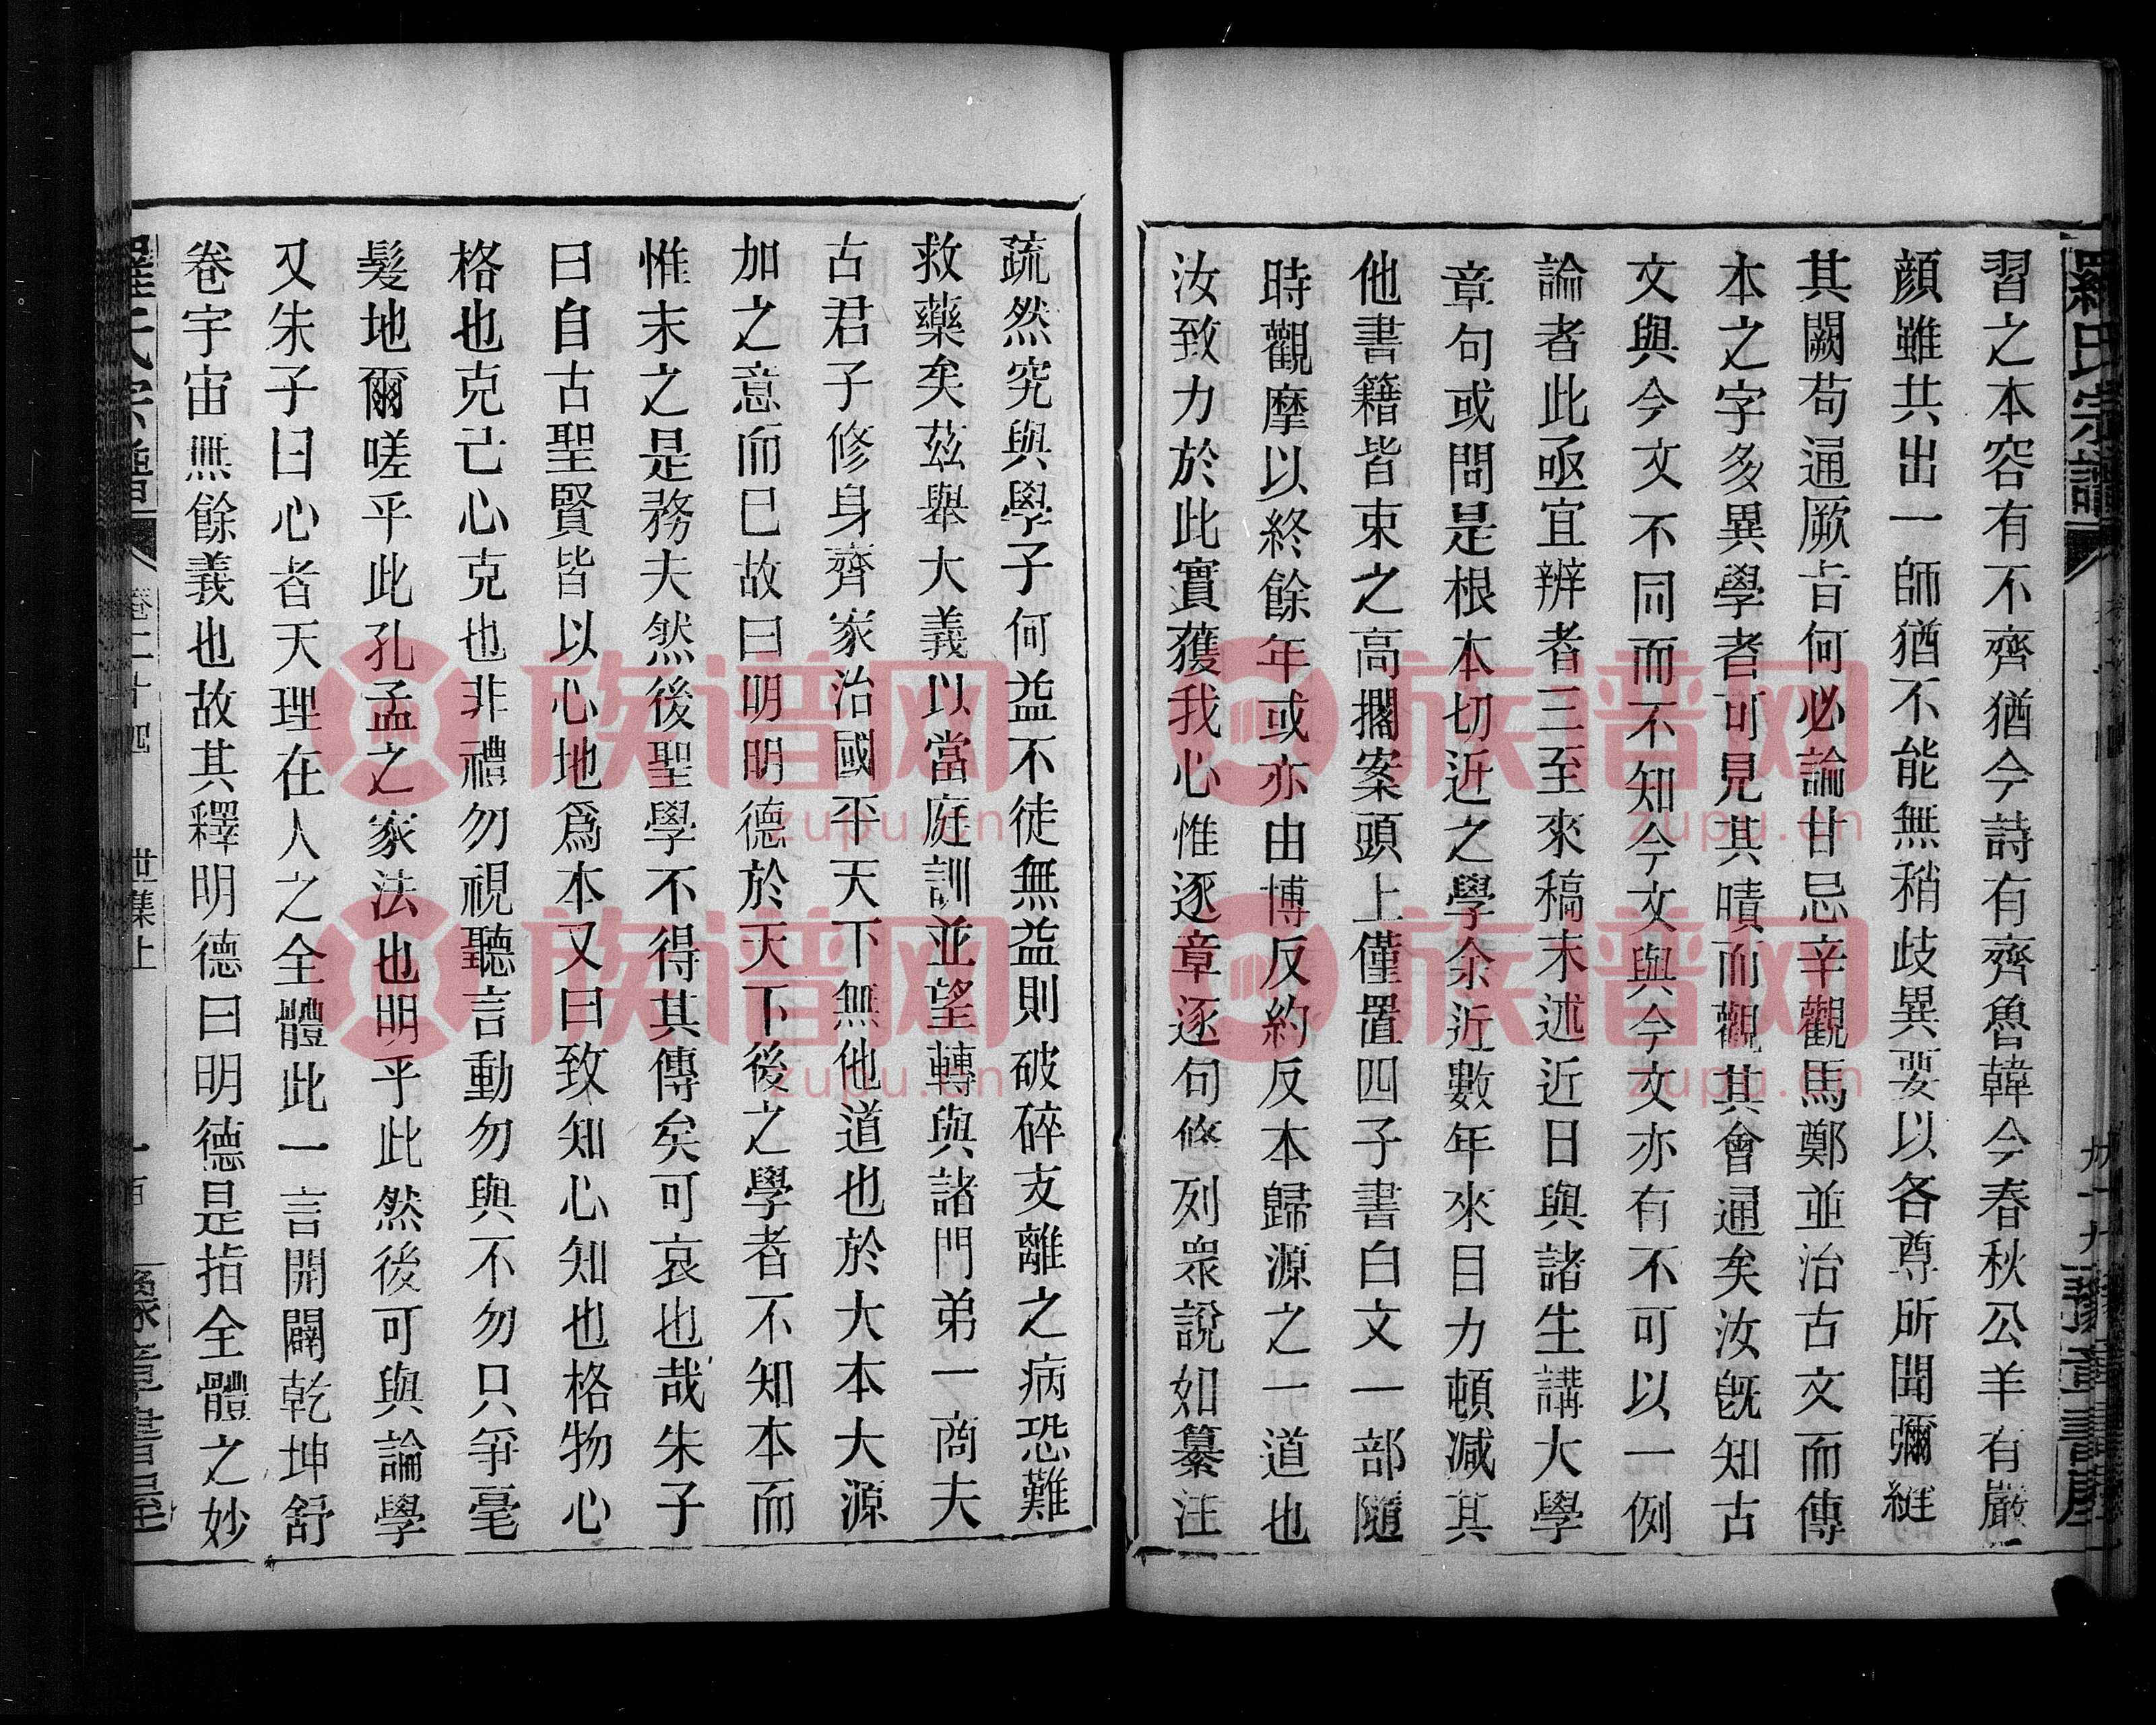 羅氏宗譜
豫章書屋
習之本容有不齊猶今詩有齊魯韓今春秋公羊有嚴
顔雖共出一師猶不能無稍歧異要以各尊所聞彌縫
其闕苟通厥旨何必論甘忌辛觀馬鄭並治古文而傳
本之字多異學者可見其嘖而觀其會通矣汝旣知古
文與今文不同而不知今文與今文亦有不可以一例
論者此亟宜辨者三至來稿末述近日與諸生講大學
章句或問是根本切近之學余近數年來目力頓減其
他書籍皆束之高擱案頭上僅置四子書白文一部隨
時觀摩以終餘年或亦由博反約反本歸源之一道也
汝致力於此實獲我心惟逐章逐句條列衆說如纂注
疏然究與學子何益不徒無益則破碎支離之病恐難
救藥矣茲舉大義以當庭訓並望轉與諸門弟一商夫
古君子修身齊家治國平天下無他道也於大本大源
加之意而巳故曰明明德於天下後之學者不知本而
惟末之是務夫然後聖學不得其傳矣可哀也哉朱子
曰自古聖賢皆以心地爲本又曰致知心知也格物心
格也克己心克也非禮勿視聽言動勿與不勿只爭毫
髮地爾嗟乎此孔孟之家法也明乎此然後可與論學
又朱子曰心者天理在人之全體此一言開闢乾坤舒
卷宇宙無餘義也故其釋明德曰明德是指全體之妙
卷二十四
世集上
族谱网
zupu.cn
族谱网
zupu.cn
族谱网
zupu.cn
族谱网
zupu.cn